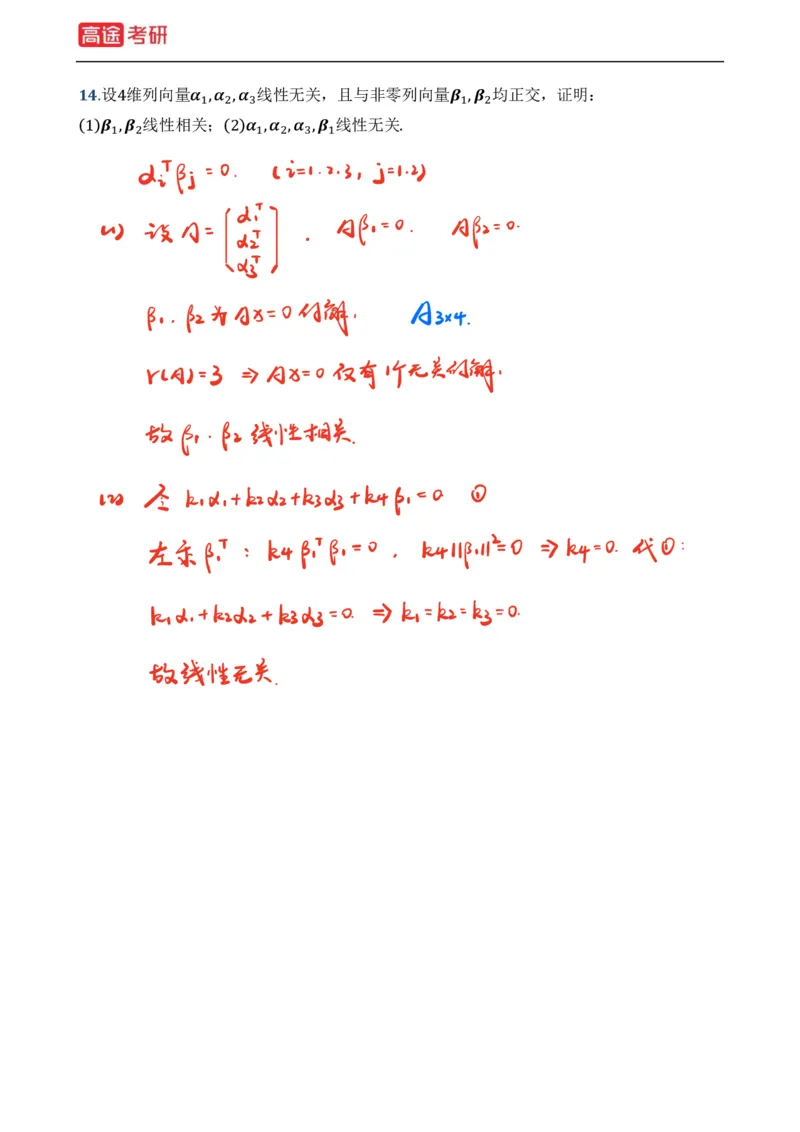 高途考研
14.设4维列向量α₁,α₂,α₃线性无关，且与非零列向量β₁,β₂均正交，证明：
(1)β₁,β₂线性相关；(2)α₁,α₂,α₃,β₁线性无关.
αᵢᵀβⱼ=0. (i=1.2.3, j=1.2)
(1) 设A=(α₁ᵀ α₂ᵀ α₃ᵀ). Aβ₁=0. Aβ₂=0.
β₁.β₂为Ax=0的解. A₃ₓ₄.
r(A)=3 ⇒ Ax=0仅有1个无关的解.
故β₁.β₂线性相关.
(2) 令 k₁α₁+k₂α₂+k₃α₃+k₄β₁=0 ①
左乘β₁ᵀ: k₄β₁ᵀβ₁=0, k₄||β₁||²=0 ⇒k₄=0. 代①:
k₁α₁+k₂α₂+k₃α₃=0. ⇒ k₁=k₂=k₃=0.
故线性无关.